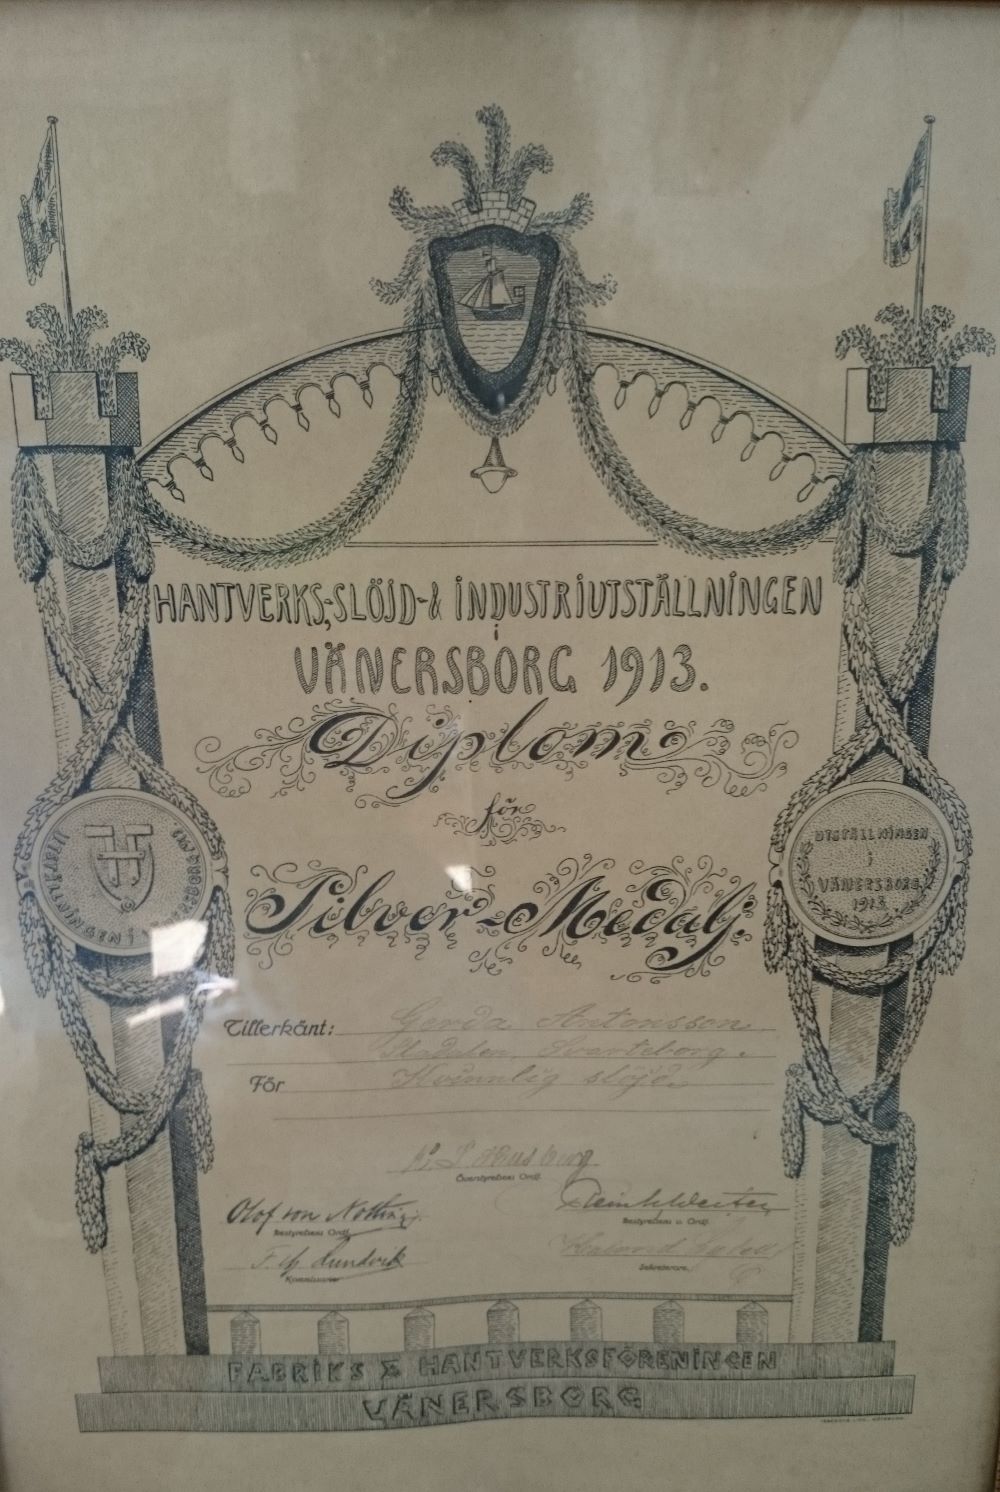 HANTVERKS,-SLÖJD-& INDUSTRIUTSTÄLLNINGEN
i
VÄNERSBORG 1913.
Diplom
för
Silver-Medalj.
UTSTÄLLNINGEN
i
VÄNERSBORG
1913.
Tillerkänt: Gerda Antonsson
Svarteborg.
För Kvinnlig slöjd.
Överstyrelsens Ordf.
Olof von
Bestyrelsens Ordf.
Bestyrelsens v. Ordf.
Lundvik
Kommissarie
Sekreterare.
FABRIKS & HANTVERKSFÖRENINGEN
VÄNERSBORG